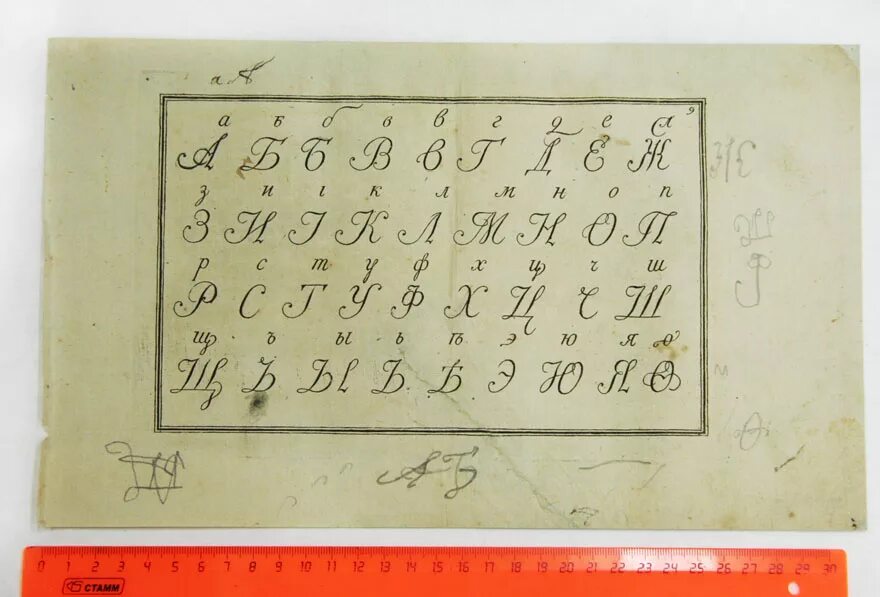 а А
а ъ б в в г д е ж э
А Б Б В В Г Д Е Ж
з и і к л м н о п
З И І К Л М Н О П
р с т у ф х ц ч ш
Р С Т У Ф Х Ц Ч Ш
щ ъ ы ь ѣ э ю я ѳ
Щ Ъ Ы Ь Ѣ Э Ю Я Ѳ
А Б
0 1 2 3 4 5 6 7 8 9 10 11 12 13 14 15 16 17 18 19 20 21 22 23 24 25 26 27 28 29 30
СТАММ